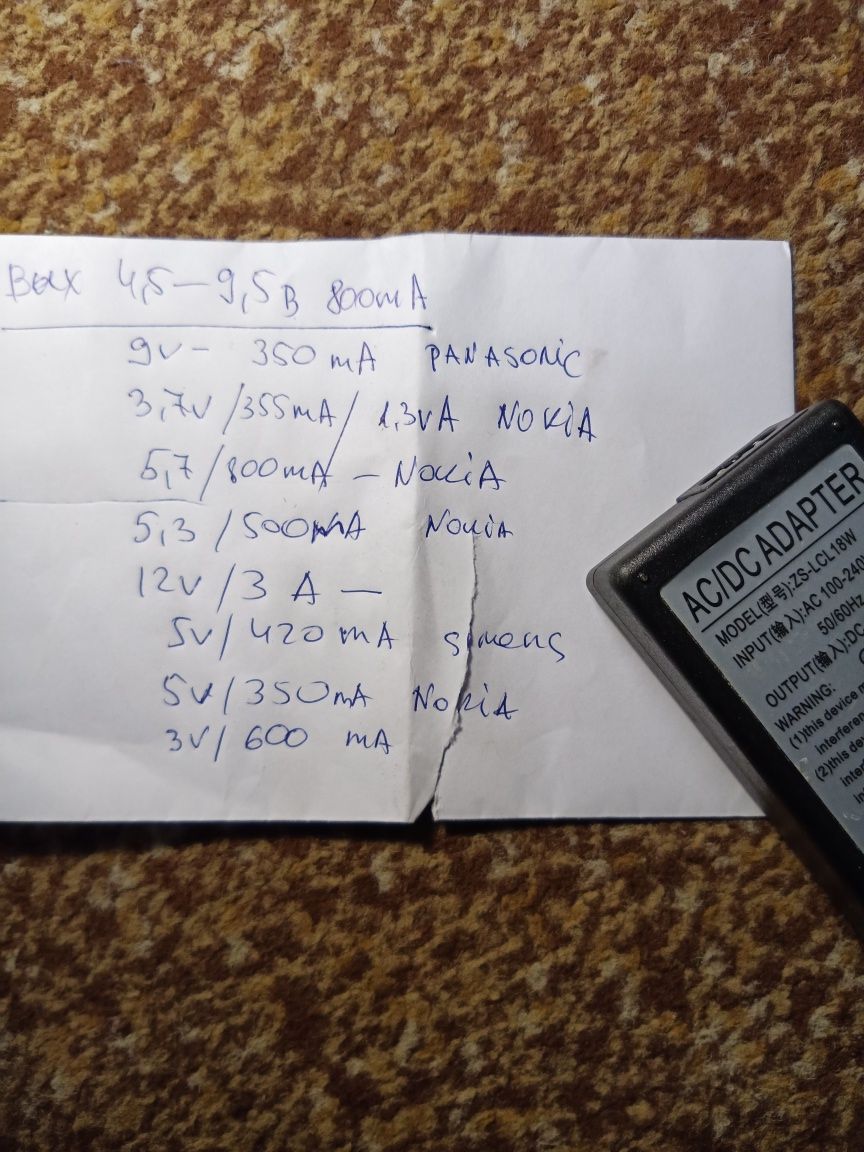 Вых 4,5-9,5 в 800mA
9v - 350 mA PANASONIC
3,7v/355mA/1.3vA NOKIA
5,7/800mA - NOKIA
5,3/500mA NOKIA
12v/3 A -
5v/420 mA simens
5v/350mA NOKIA
3v/600 mA
AC/DC ADAPTER
MODEL(型号):ZS-LCL18W
INPUT(输入):AC 100-240
50/60Hz
OUTPUT(输入):DC
WARNING:
(1)this device
interferen
(2)this dev
inter